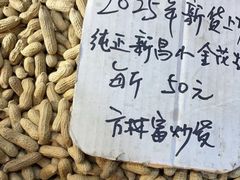 2025年新货上
纯正新昌小金花
每斤 50元
方林富炒货